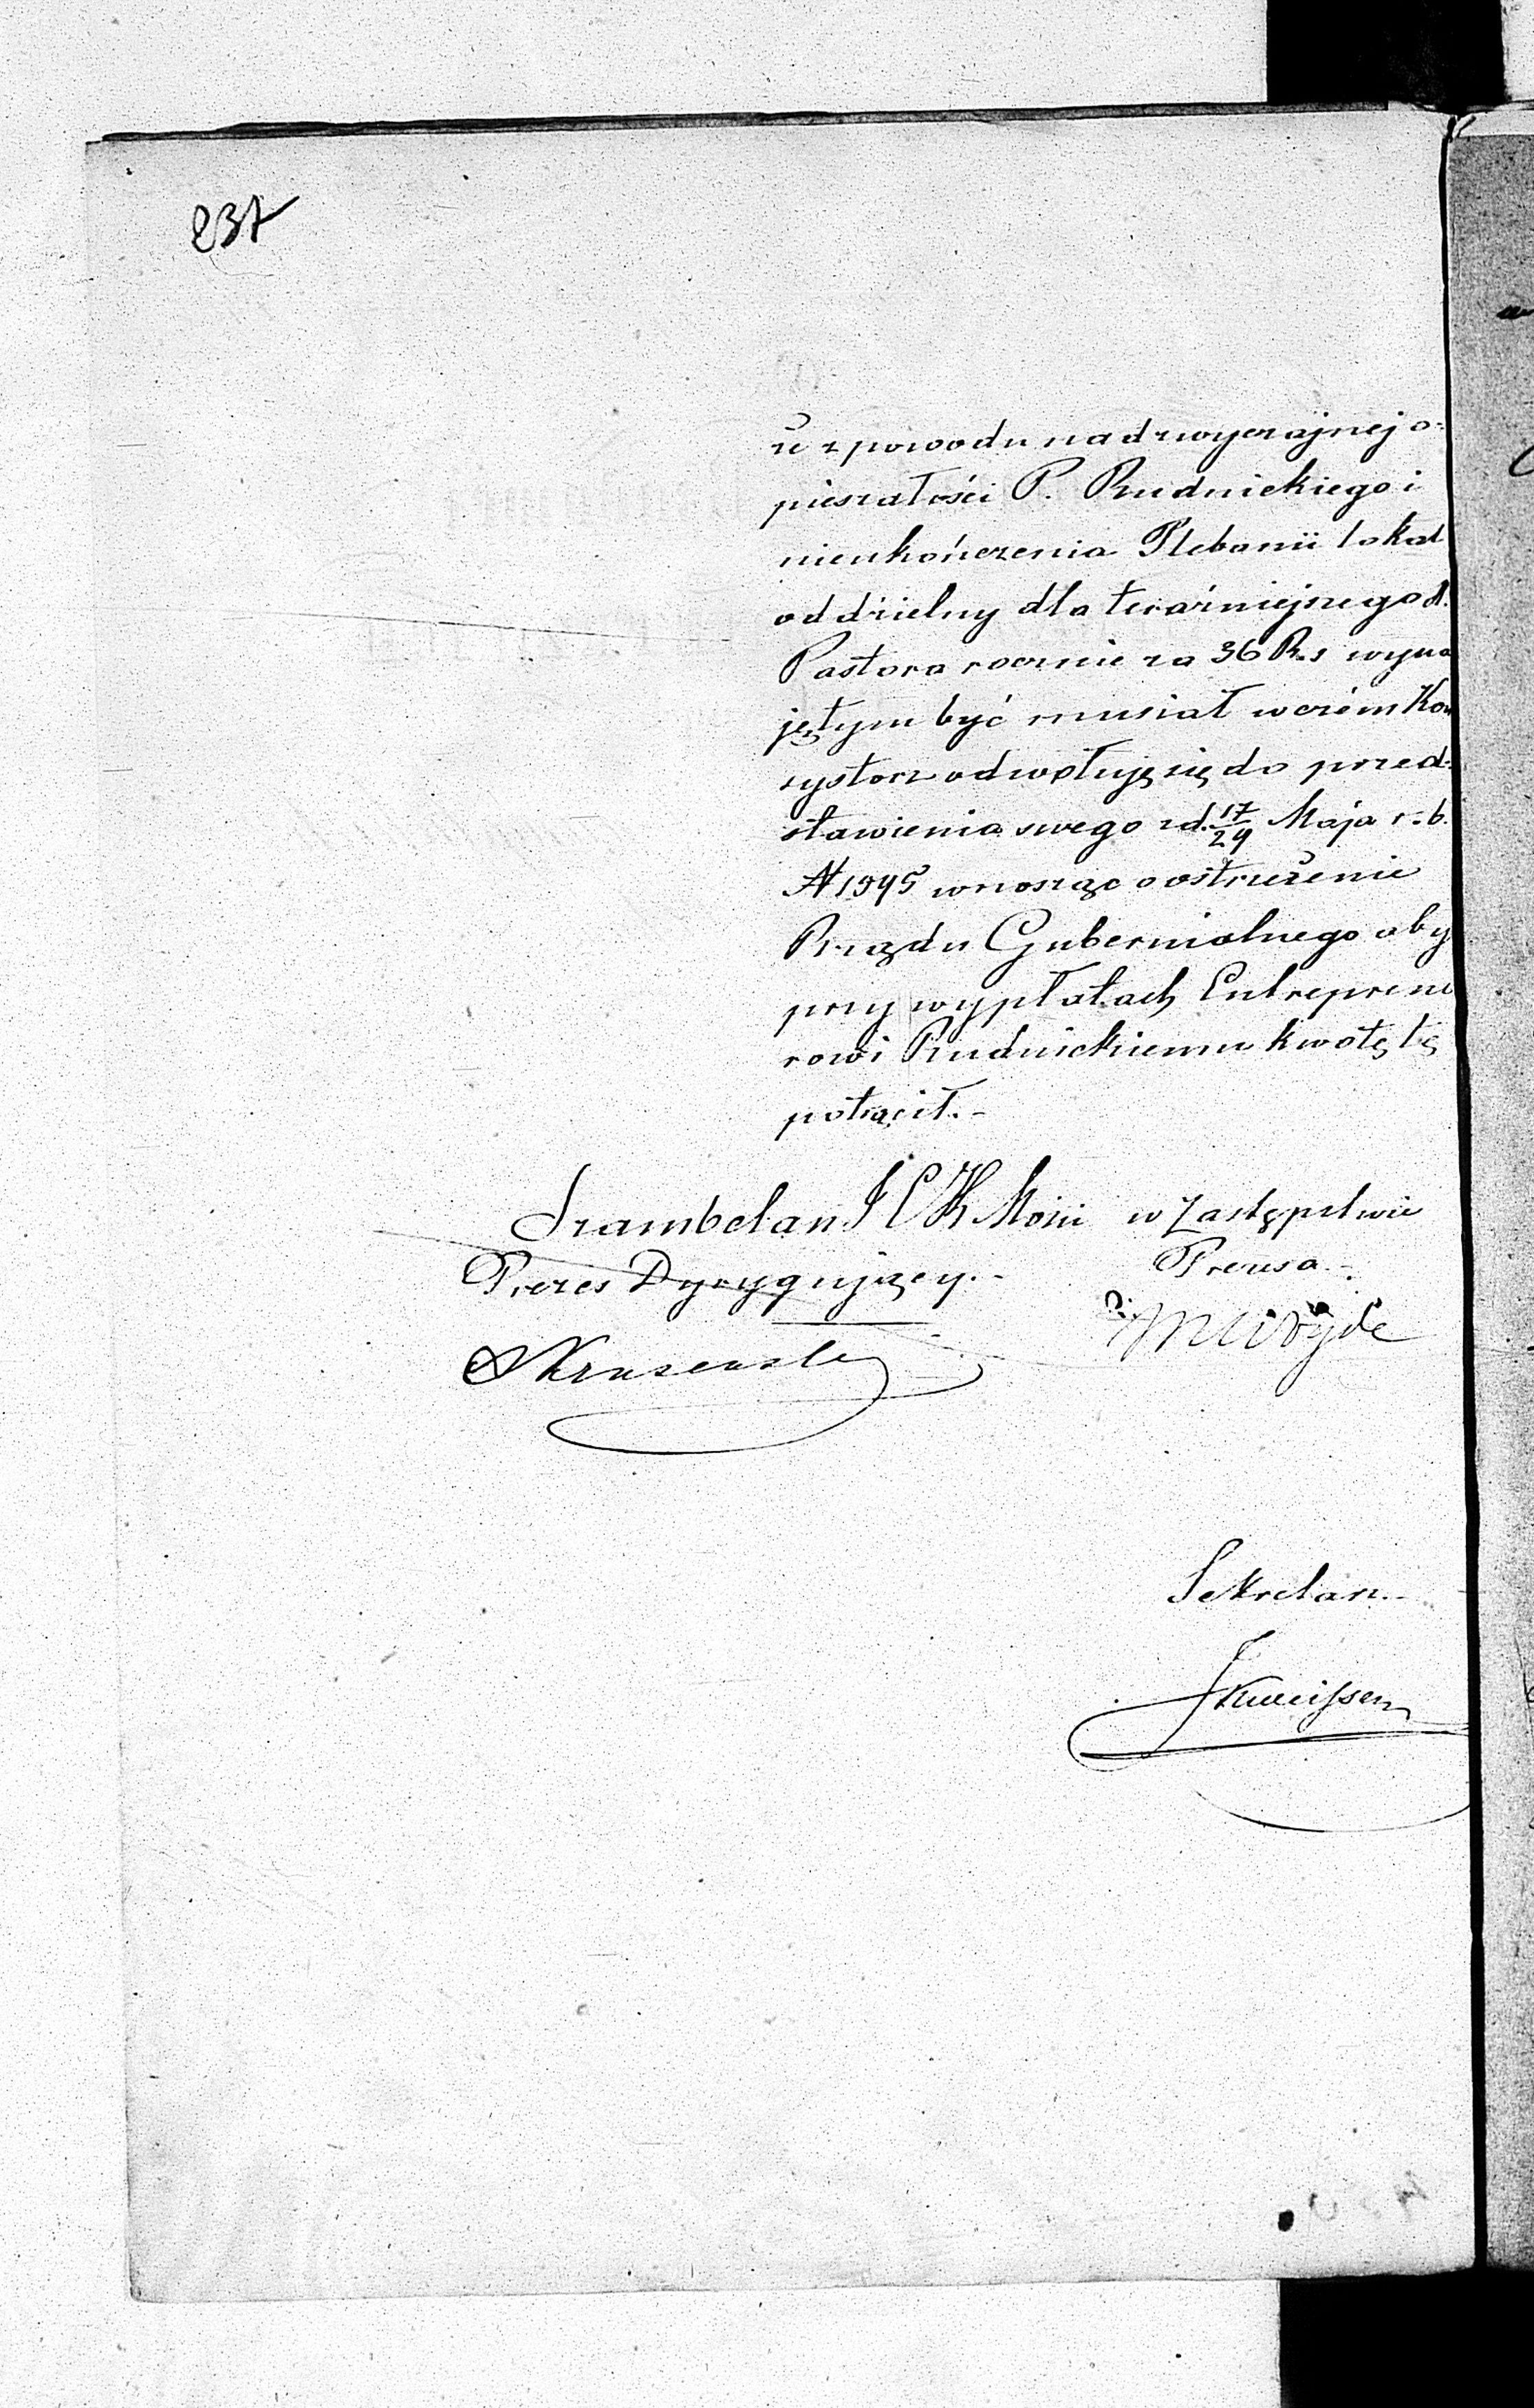 237
że z powodu nadzwyczajnej o=
pieszałości P. Rudnickiego i
nieukończenia Plebanii lokal
oddzielny dla teraźniejszego X.
Pastora rocznie za 36 R.s wyna
jętym być musiał w czém Kon
systorz odwołuję się do przed=
stawienia swego z d. 17/29 Maja r. b.
N 1945 wnosząc o ostrzeżenie
Rządu Gubernialnego aby
przy wypłatach Entreprene
rowi Rudnickiemu kwotę tę
potrącił.-
Szambelan J C K Mości w Zastępstwie
Prezes Dyrygujący.- Prezesa.-
Sekretarz.-